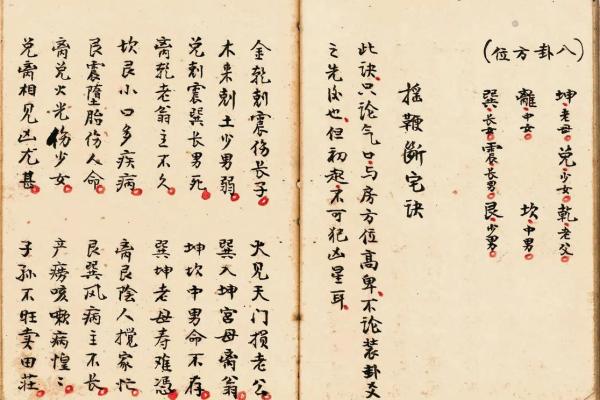 (八卦方位)
坤老母 兑少女 乾老父
離中女 坎中男
巽长女 震长男 艮少男
摇鞭斷宅诀
此诀只论气口与房方位高卑不论装卦爻
之先後也但初起不可犯凶星耳
金乾剋震伤长子 火见天门损老公
木来剋土少男弱 巽入坤宫母离翁
兑剋震巽长男死 坤坎中男命不存
离乾老翁主不久 巽坤老母寿难憑
坎艮小口多疾病 离艮陰人搅家忙
艮震墮胎伤人命 艮巽风病主不长
离兑火光伤少女 产痨咳嗽病惶〻
兑离相见凶尤甚 子孙不旺卖田莊